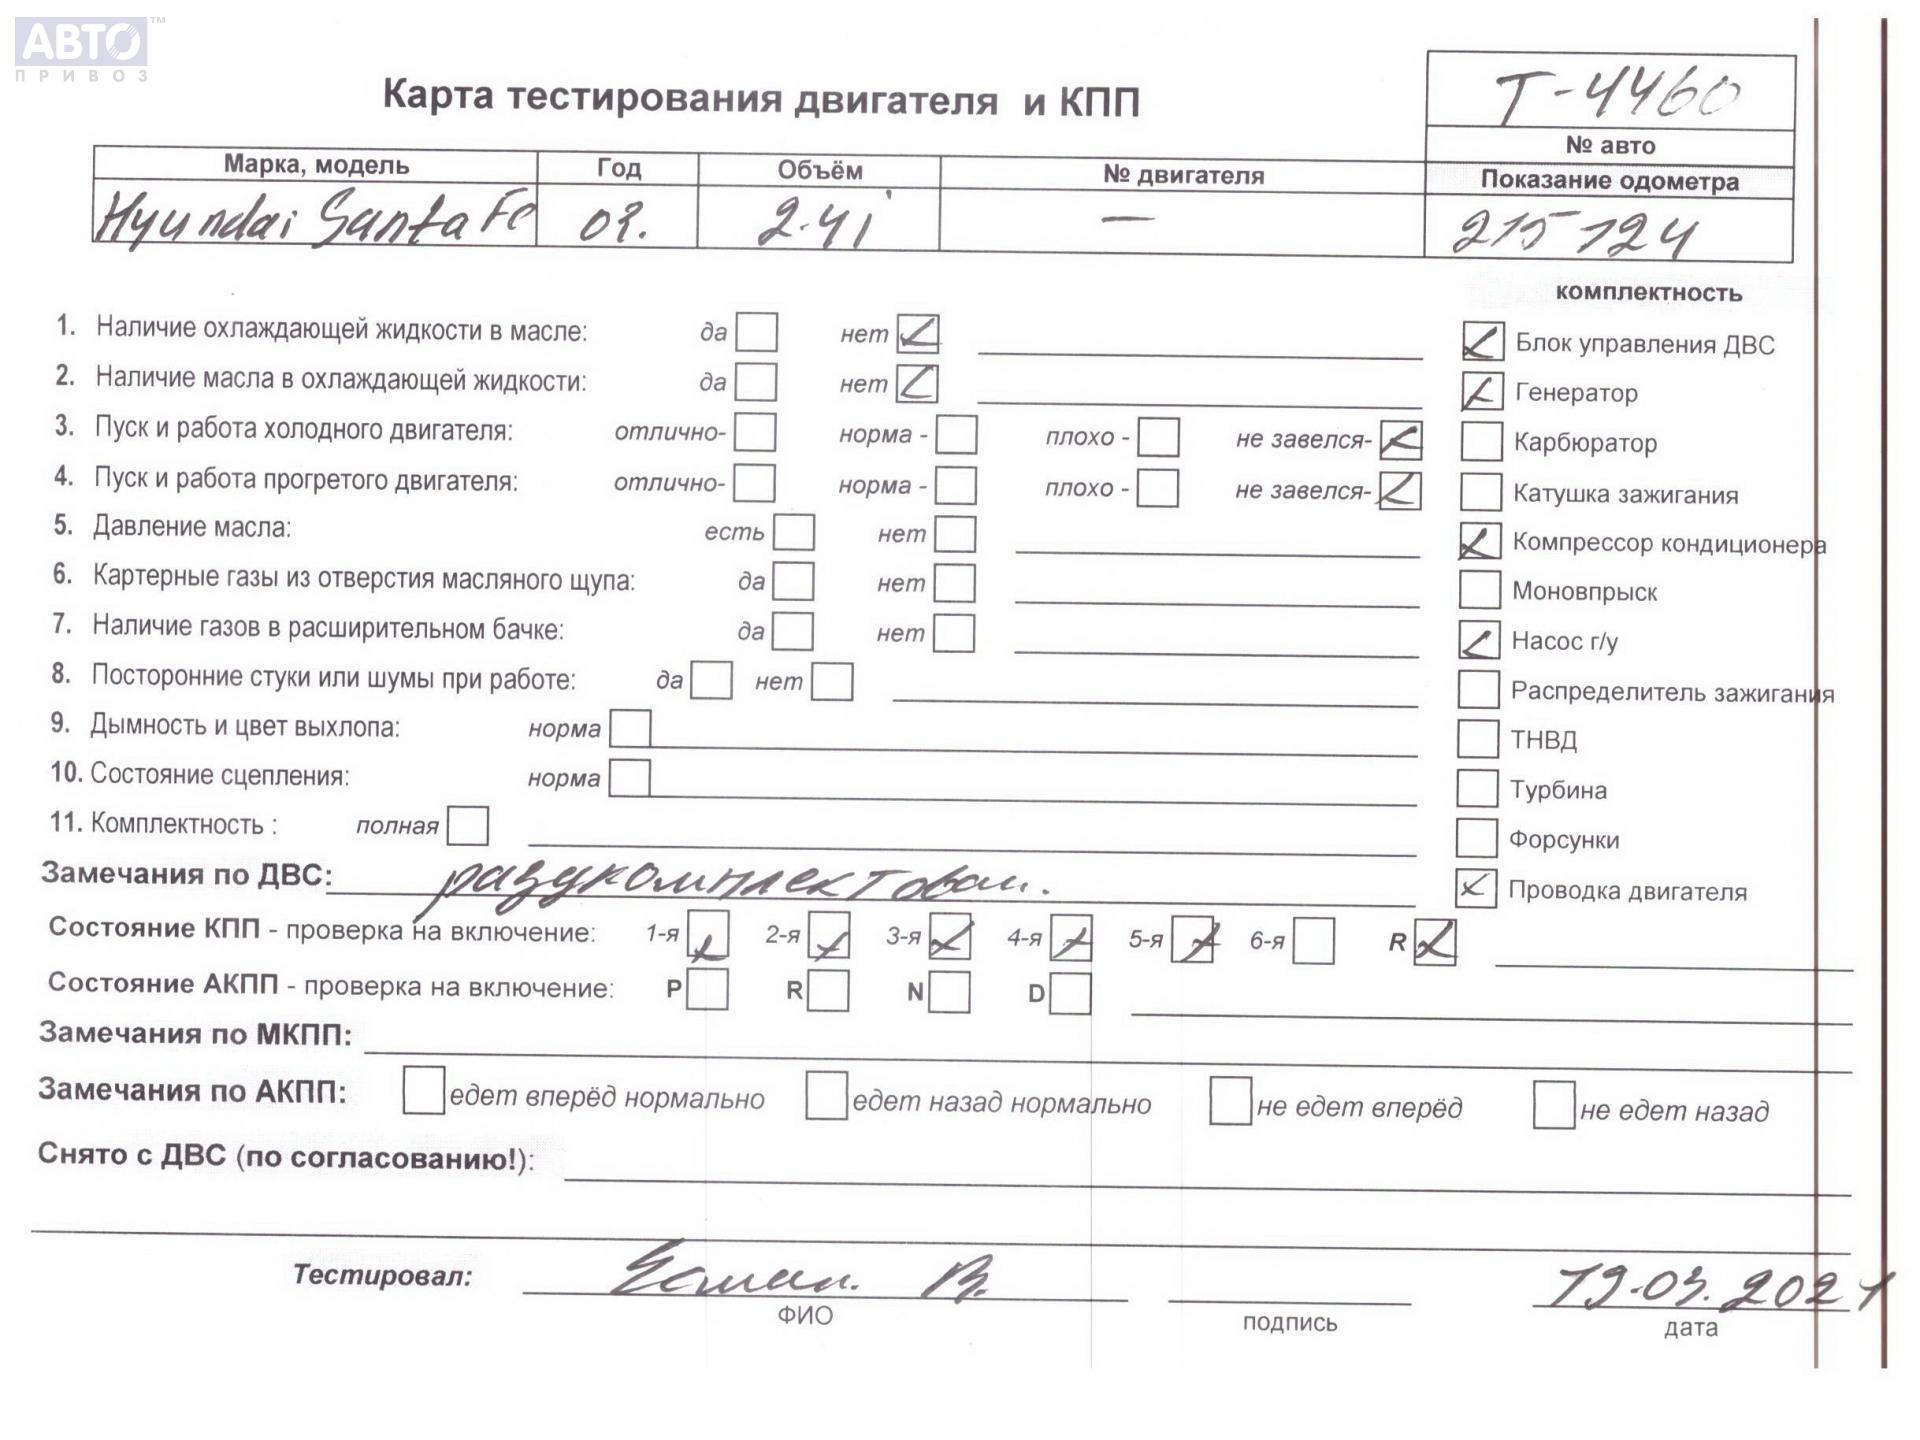 АВТО™
ПРИВОЗ
Карта тестирования двигателя и КПП
Т-4460
№ авто
Марка, модель Год Объём № двигателя Показание одометра
Hyundai Santa Fe 02. 2.4i — 215124
комплектность
1. Наличие охлаждающей жидкости в масле: да нет Блок управления ДВС
2. Наличие масла в охлаждающей жидкости: да нет Генератор
3. Пуск и работа холодного двигателя: отлично- норма - плохо - не завелся- Карбюратор
4. Пуск и работа прогретого двигателя: отлично- норма - плохо - не завелся- Катушка зажигания
5. Давление масла: есть нет Компрессор кондиционера
6. Картерные газы из отверстия масляного щупа: да нет Моновпрыск
7. Наличие газов в расширительном бачке: да нет Насос г/у
8. Посторонние стуки или шумы при работе: да нет Распределитель зажигания
9. Дымность и цвет выхлопа: норма ТНВД
10. Состояние сцепления: норма Турбина
11. Комплектность : полная Форсунки
Замечания по ДВС: разукомплектован. Проводка двигателя
Состояние КПП - проверка на включение: 1-я 2-я 3-я 4-я 5-я 6-я R
Состояние АКПП - проверка на включение: P R N D
Замечания по МКПП:
Замечания по АКПП: едет вперёд нормально едет назад нормально не едет вперёд не едет назад
Снято с ДВС (по согласованию!):
Тестировал: В. 19.03.2021
ФИО подпись дата